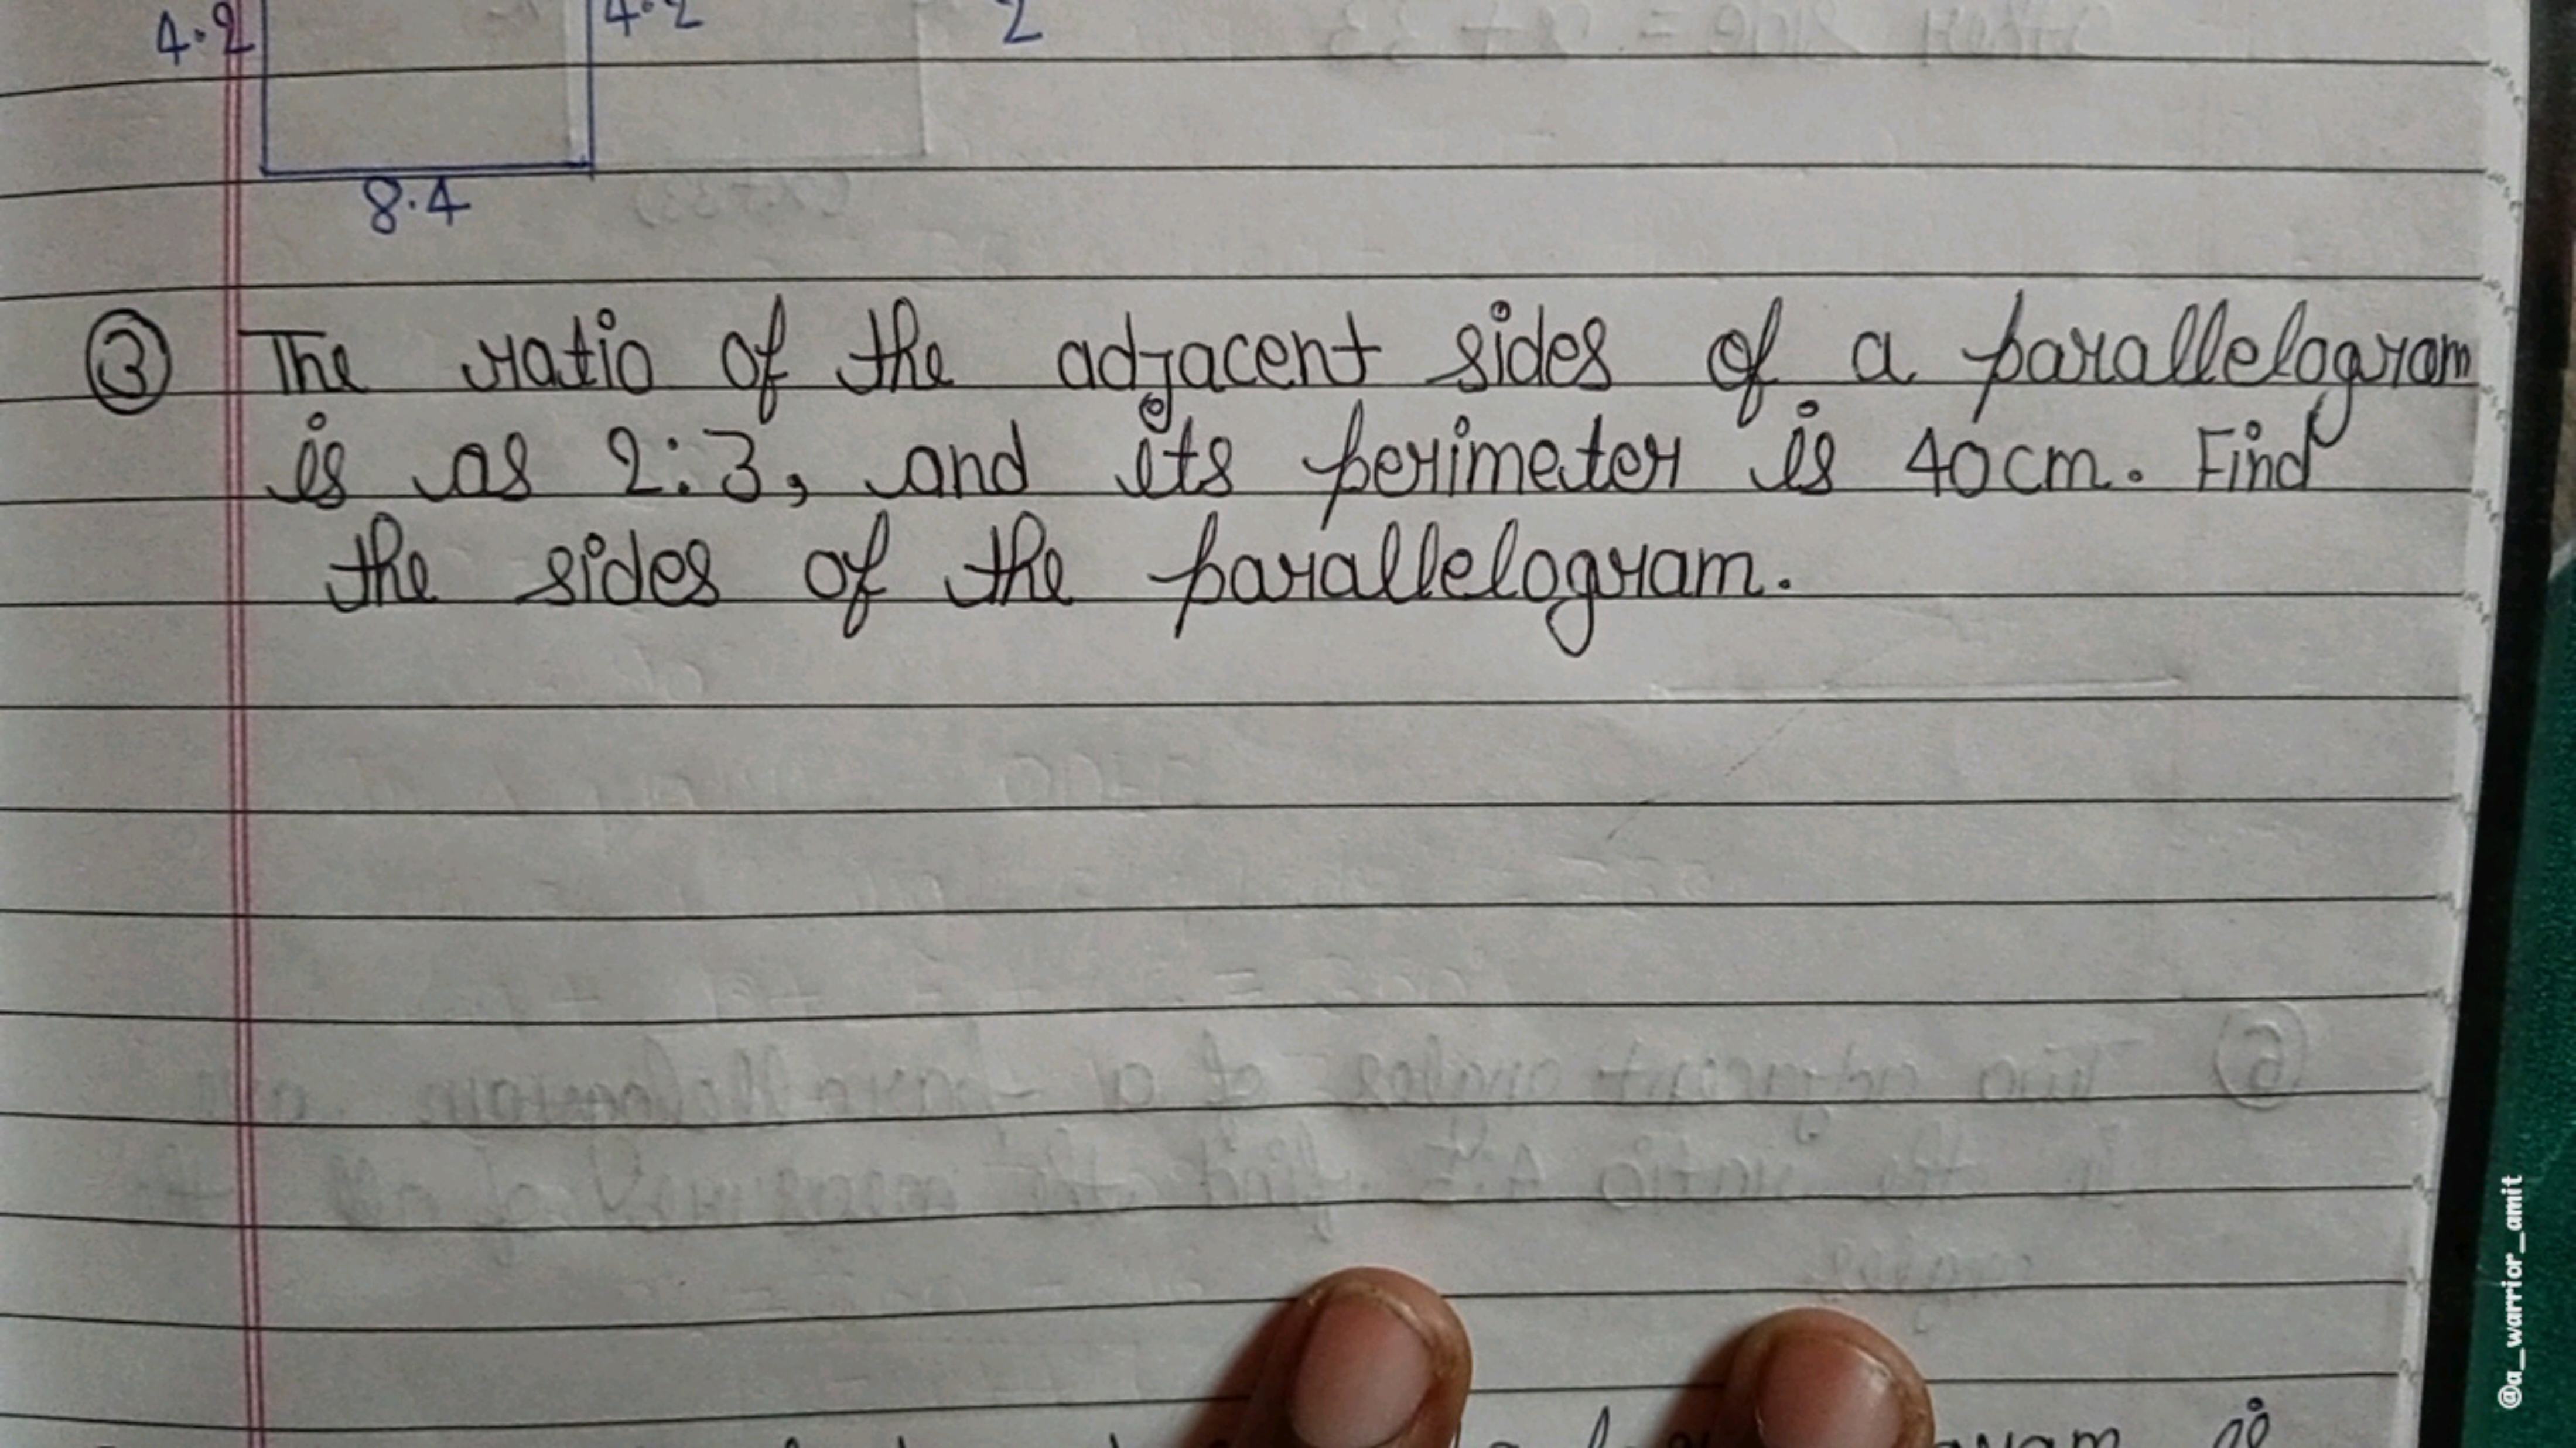 4.2 4.2 2
8.4
③ The ratio of the adjacent sides of a parallelogram
is as 2:3, and its perimeter is 40cm. Find
the sides of the parallelogram.
@a_warrior_amit